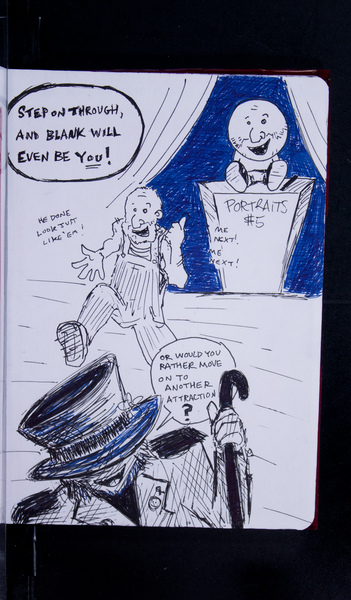 STEP ON THROUGH,
AND BLANK WILL
EVEN BE YOU!
PORTRAITS
#5
ME
NEXT!
ME
NEXT!
HE DONE
LOOK JUST
LIKE 'EM!
OR WOULD YOU
RATHER MOVE
ON TO
ANOTHER
ATTRACTION
?